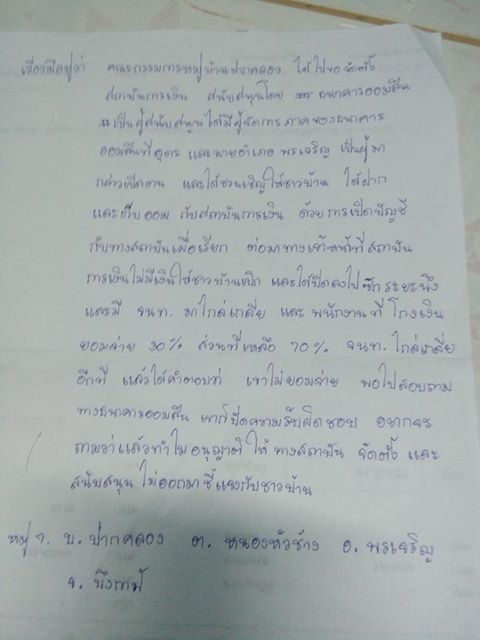 เรื่องมีอยู่ว่า คณะกรรมการหมู่บ้านปากคลอง ได้ไปขอจัดตั้ง
สถาบันการเงิน สนับสนุนโดย ธนาคารออมสิน
เป็นผู้สนับสนุนได้มีผู้จัดการภาคของธนาคาร
ออมสินที่อุดร และนายอำเภอ พรเจริญ เป็นผู้มา
กล่าวเปิดงาน และได้ชวนเชิญให้ชาวบ้าน ได้ฝาก
และเก็บออม กับสถาบันการเงิน ด้วยการเปิดบัญชี
กับทางสถาบันเผื่อเรียก ต่อมาทางเจ้าหน้าที่สถาบัน
การเงินไม่มีเงินให้ชาวบ้านเบิก และได้ปิดลงไปสักระยะนึง
และมี จนท. มาไกล่เกลี่ย และ พนักงานที่โกงเงิน
ยอมจ่าย 30% ส่วนที่เหลือ 70% จนท. ไกล่เกลี่ย
อีกที แล้วได้คำตอบที่ เขาไม่ยอมจ่าย พอไปสอบถาม
ทางธนาคารออมสิน เขาก็ปัดความรับผิดชอบ อยากจะ
ถามว่าแล้วทำไมอนุญาติให้ทางสถาบัน จัดตั้ง และ
สนับสนุน ไม่ออกมาชี้แจงกับชาวบ้าน
หมู่ 7. บ. ปากคลอง ต. หนองหัวช้าง อ. พรเจริญ
จ. บึงกาฬ